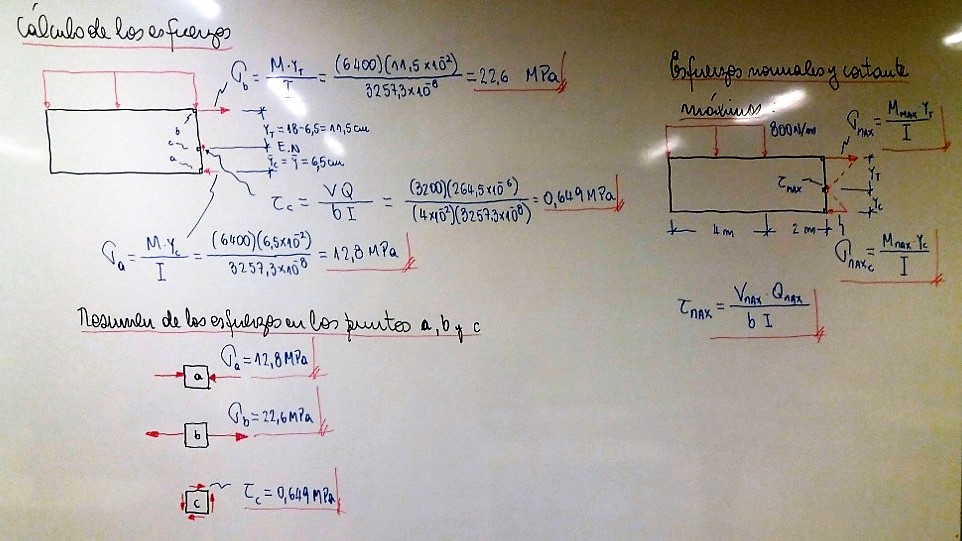 Cálculo de los esfuerzos
σb = M·YT / I = (6400)(11,5x10⁻²) / 3257,3x10⁻⁸ = 22,6 MPa
b
c
a
YT = 18-6,5 = 11,5 cm
E.N
Yc = ȳ = 6,5 cm
τc = V Q / b I = (3200)(264,5x10⁻⁶) / (4x10⁻²)(3257,3x10⁻⁸) = 0,649 MPa
σa = M·Yc / I = (6400)(6,5x10⁻²) / 3257,3x10⁻⁸ = 12,8 MPa
Resumen de los esfuerzos en los puntos a, b y c
a
σa = 12,8 MPa
b
σb = 22,6 MPa
c
τc = 0,649 MPa
Esfuerzos normales y cortante
máximos:
800 N/m
σMAX = MMAX YT / I
τMAX
YT
Yc
4 m
2 m
σMAXc = MMAX Yc / I
τMAX = VMAX QMAX / b I